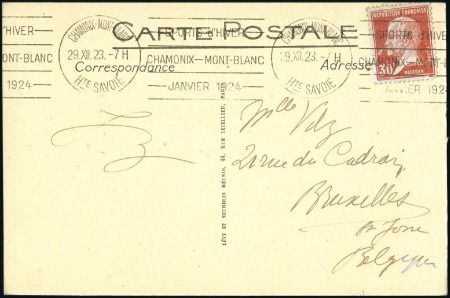 CARTE POSTALE
D'HIVER
MONT-BLANC
1924
CHAMONIX-MONT-BLANC
29.XII.23.-7H
HTE SAVOIE
SPORTS D'HIVER
CHAMONIX-MONT-BLANC
JANVIER 1924
29.XII.23.-7H
HTE SAVOIE
SPORTS D'HIVER
CHAMONIX-MONT-B
JANVIER 1924
REPUBLIQUE FRANÇAISE
30
PASTEUR
Correspondance
Adresse
LÉVY ET NEURDEIN RÉUNIS, 44, RUE LETELLIER, PARIS
Mlle
rue du Cadran
Bruxelles
St Josse
Belgique